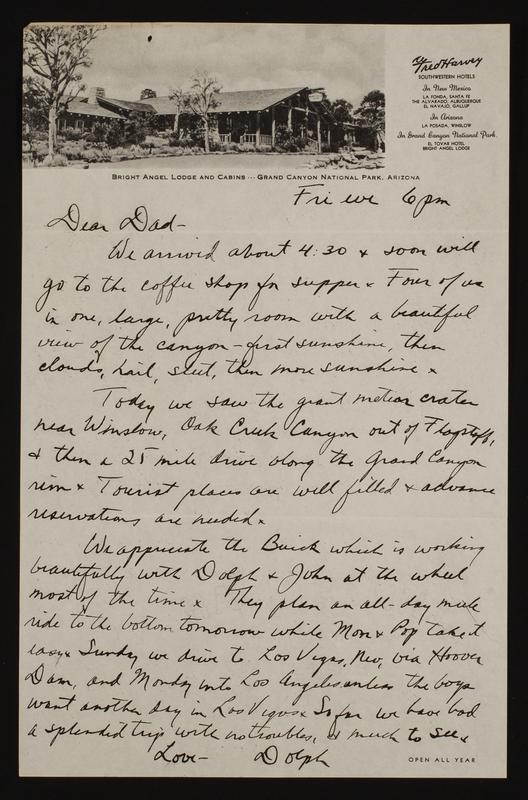 Fred Harvey
SOUTHWESTERN HOTELS
In New Mexico
LA FONDA, SANTA FE
THE ALVARADO, ALBUQUERQUE
EL NAVAJO, GALLUP
In Arizona
LA POSADA, WINSLOW
In Grand Canyon National Park
EL TOVAR HOTEL
BRIGHT ANGEL LODGE
BRIGHT ANGEL LODGE AND CABINS ··· GRAND CANYON NATIONAL PARK, ARIZONA
Fri eve 6 pm
Dear Dad-
We arrived about 4:30 & soon will
go to the coffee shop for supper x Four of us
in one, large, pretty room with a beautiful
view of the canyon - first sunshine, then
clouds, hail, sleet, then more sunshine x
Today we saw the giant meteor crater
near Winslow, Oak Creek Canyon out of Flagstaff,
& then a 25 mile drive along the Grand Canyon
rim x Tourist places are well filled & advance
reservations are needed x
We appreciate the Buick which is working
beautifully with Dolph & John at the wheel
most of the time x They plan an all-day mule
ride to the bottom tomorrow while Mom & Pop take it
easy x Sunday we drive to Los Vegas, Nev, via Hoover
Dam, and Monday into Los Angeles unless the boys
want another day in Los Vegas x So far we have had
a splendid trip with no troubles, & much to see x
Love- Dolph
OPEN ALL YEAR